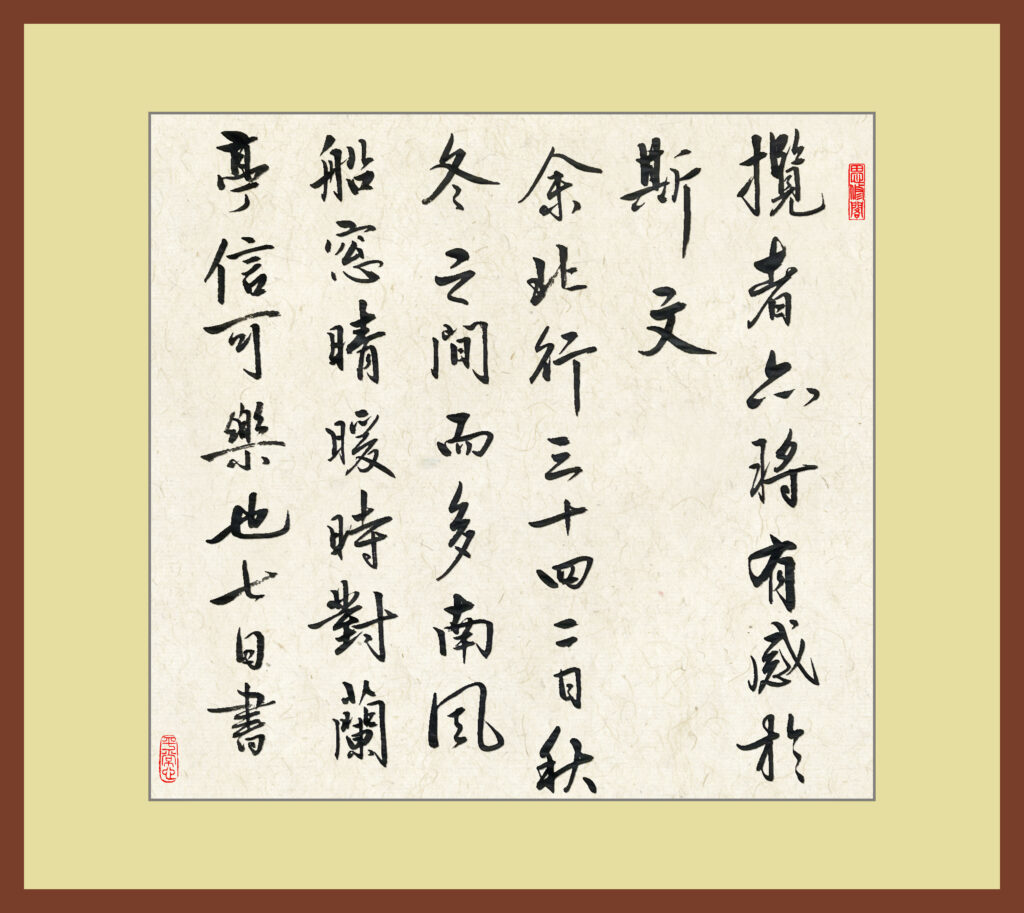 攬者亦將有感於
斯文
余北行三十四二日秋
冬之間而多南風
船窓晴暖時對蘭
亭信可樂也七日書
平常心